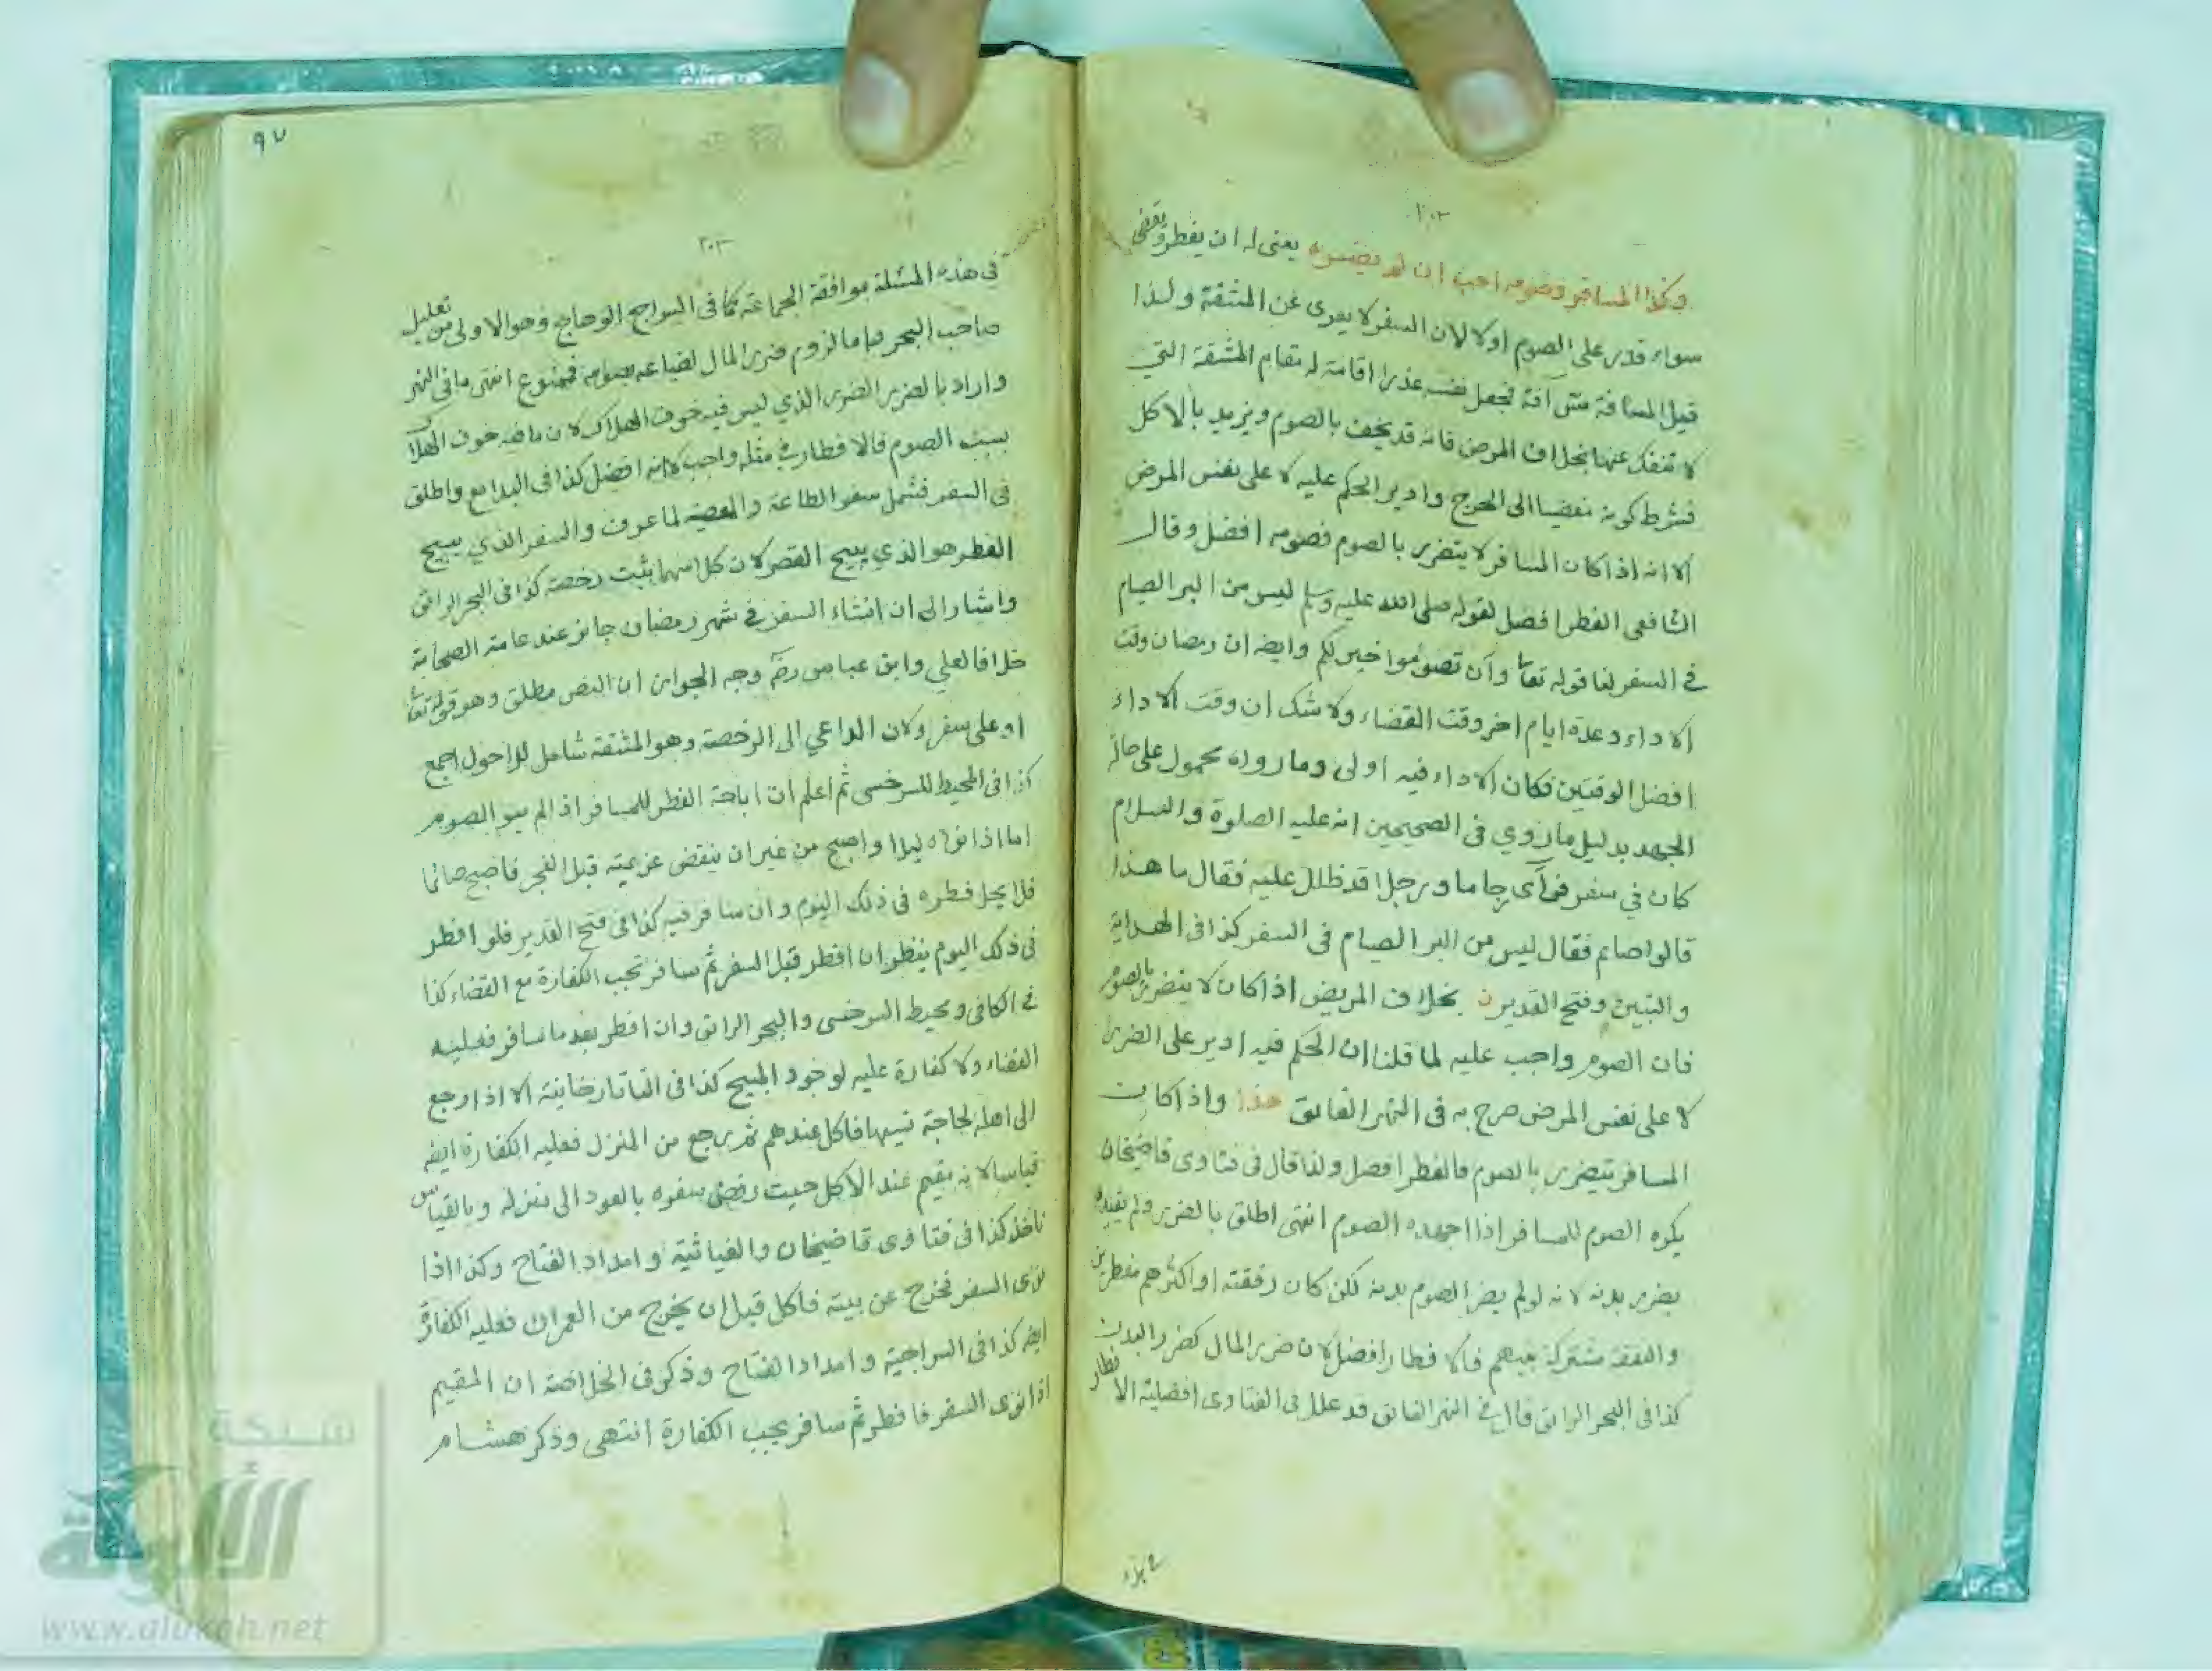 ٢٠٢
وكذا المسافر وصومه احب ان لم يضره يعنى له ان يفطر ويقضى
سواء قدر على الصوم او لا لان السفر لا يعرى عن المشقة ولذا
قيل المسافة مس آفة فجعل نفسه عذرا اقامة له مقام المشقة التي
لا تنفك عنها بخلاف المرض فانه قد يخف بالصوم ويزيد بالاكل
فشرط كونه مفضيا الى الحرج وادير الحكم عليه لا على نفس المرض
الا انه اذا كان المسافر لا يتضرر بالصوم فصومه افضل وقال
الشافعى الفطر افضل لقوله صلى الله عليه وسلم ليس من البر الصيام
في السفر لنا قوله تعا وان تصوموا خير لكم وايضه ان رمضان وقت
الاداء وعدة ايام اخر وقت القضاء ولا شك ان وقت الاداء
افضل الوقتين فكان الاداء فيه اولى وما رواه محمول على حالة
الجهد بدليل ما روي فى الصحيحين انه عليه الصلوة والسلام
كان في سفر فرآى زحاما ورجلا قد ظلل عليه فقال ما هذا
قالوا صائم فقال ليس من البر الصيام فى السفر كذا فى الهداية
والتبيين وفتح القدير بخلاف المريض اذا كان لا يتضرر بالصوم
فان الصوم واجب عليه لما قلنا ان الحكم فيه ادير على الضرر
لا على نفس المرض صرح به فى النهر الفائق هذا واذا كان
المسافر يتضرر بالصوم فالفطر افضل ولذا قال فى فتاوى قاضيخان
يكره الصوم للمسافر اذا اجهده الصوم انتهى اطلق بالضرر ولم يقيده
بضرر بدنه لانه لو لم يضر الصوم بدنه لكن كان رفقته او اكثرهم مفطرين
والنفقة مشتركة بينهم فالافطار افضل لان ضرر المال كضرر البدن
كذا فى البحر الرائق قال في النهر الفائق قد علل فى الفتاوى افضلية الافطار
٩٧
٢٠٣
فى هذه المسئلة بموافقة الجماعة كما فى السراج الوهاج وهو الاولى من تعليل
صاحب البحر واما لزوم ضرر المال لضياعه بصومه فممنوع انتهى ما فى النهر
واراد بالضرر الضرر الذي ليس فيه خوف الهلاك لان ما فيه خوف الهلاك
بسبب الصوم فالافطار في مثله واجب لا انه افضل كذا فى البدايع واطلق
فى السفر فشمل سفر الطاعة والمعصية لما عرف والسفر الذي يبيح
الفطر هو الذي يبيح القصر لان كلا منهما يثبت رخصة كذا فى البحر الرائق
واشار الى ان انشاء السفر في شهر رمضان جائز عند عامة الصحابة
خلافا لعلي وابن عباس رضه وجه الجواز ان النص مطلق وهو قوله تعا
او على سفر ولان الداعي الى الرخصة وهو المشقة شامل للاحول اجمع
كذا فى المحيط للسرخسى ثم اعلم ان اباحة الفطر للمسافر اذا لم ينو الصوم
اما اذا نواه ليلا واصبح من غير ان ينقض عزيمته قبل الفجر فاصبح صائما
فلا يحل فطره فى ذلك اليوم وان سافر فيه كذا فى فتح القدير فلو افطر
فى ذلك اليوم ينظر ان افطر قبل السفر ثم سافر تجب الكفارة مع القضاء كذا
في الكافى ومحيط السرخسى والبحر الرائق وان افطر بعد ما سافر فعليه
القضاء ولا كفارة عليه لوجود المبيح كذا فى التاتارخانية الا اذا رجع
الى اهله لحاجة نسيها فاكل عندهم ثم رجع من المنزل فعليه الكفارة ايضه
قياسا لانه مقيم عند الاكل حيث رفض سفره بالعود الى منزله وبالقياس
ناخذ كذا فى فتاوى قاضيخان والغياثية وامداد الفتاح وكذا اذا
نوى السفر فخرج عن بيته فاكل قبل ان يخرج من العمران فعليه الكفارة
ايضه كذا فى السراجية وامداد الفتاح وذكر فى الخلاصة ان المقيم
اذا نوى السفر فافطر ثم سافر يجب الكفارة انتهى وذكر هشام
شبكة
الألوكة
www.alukah.net